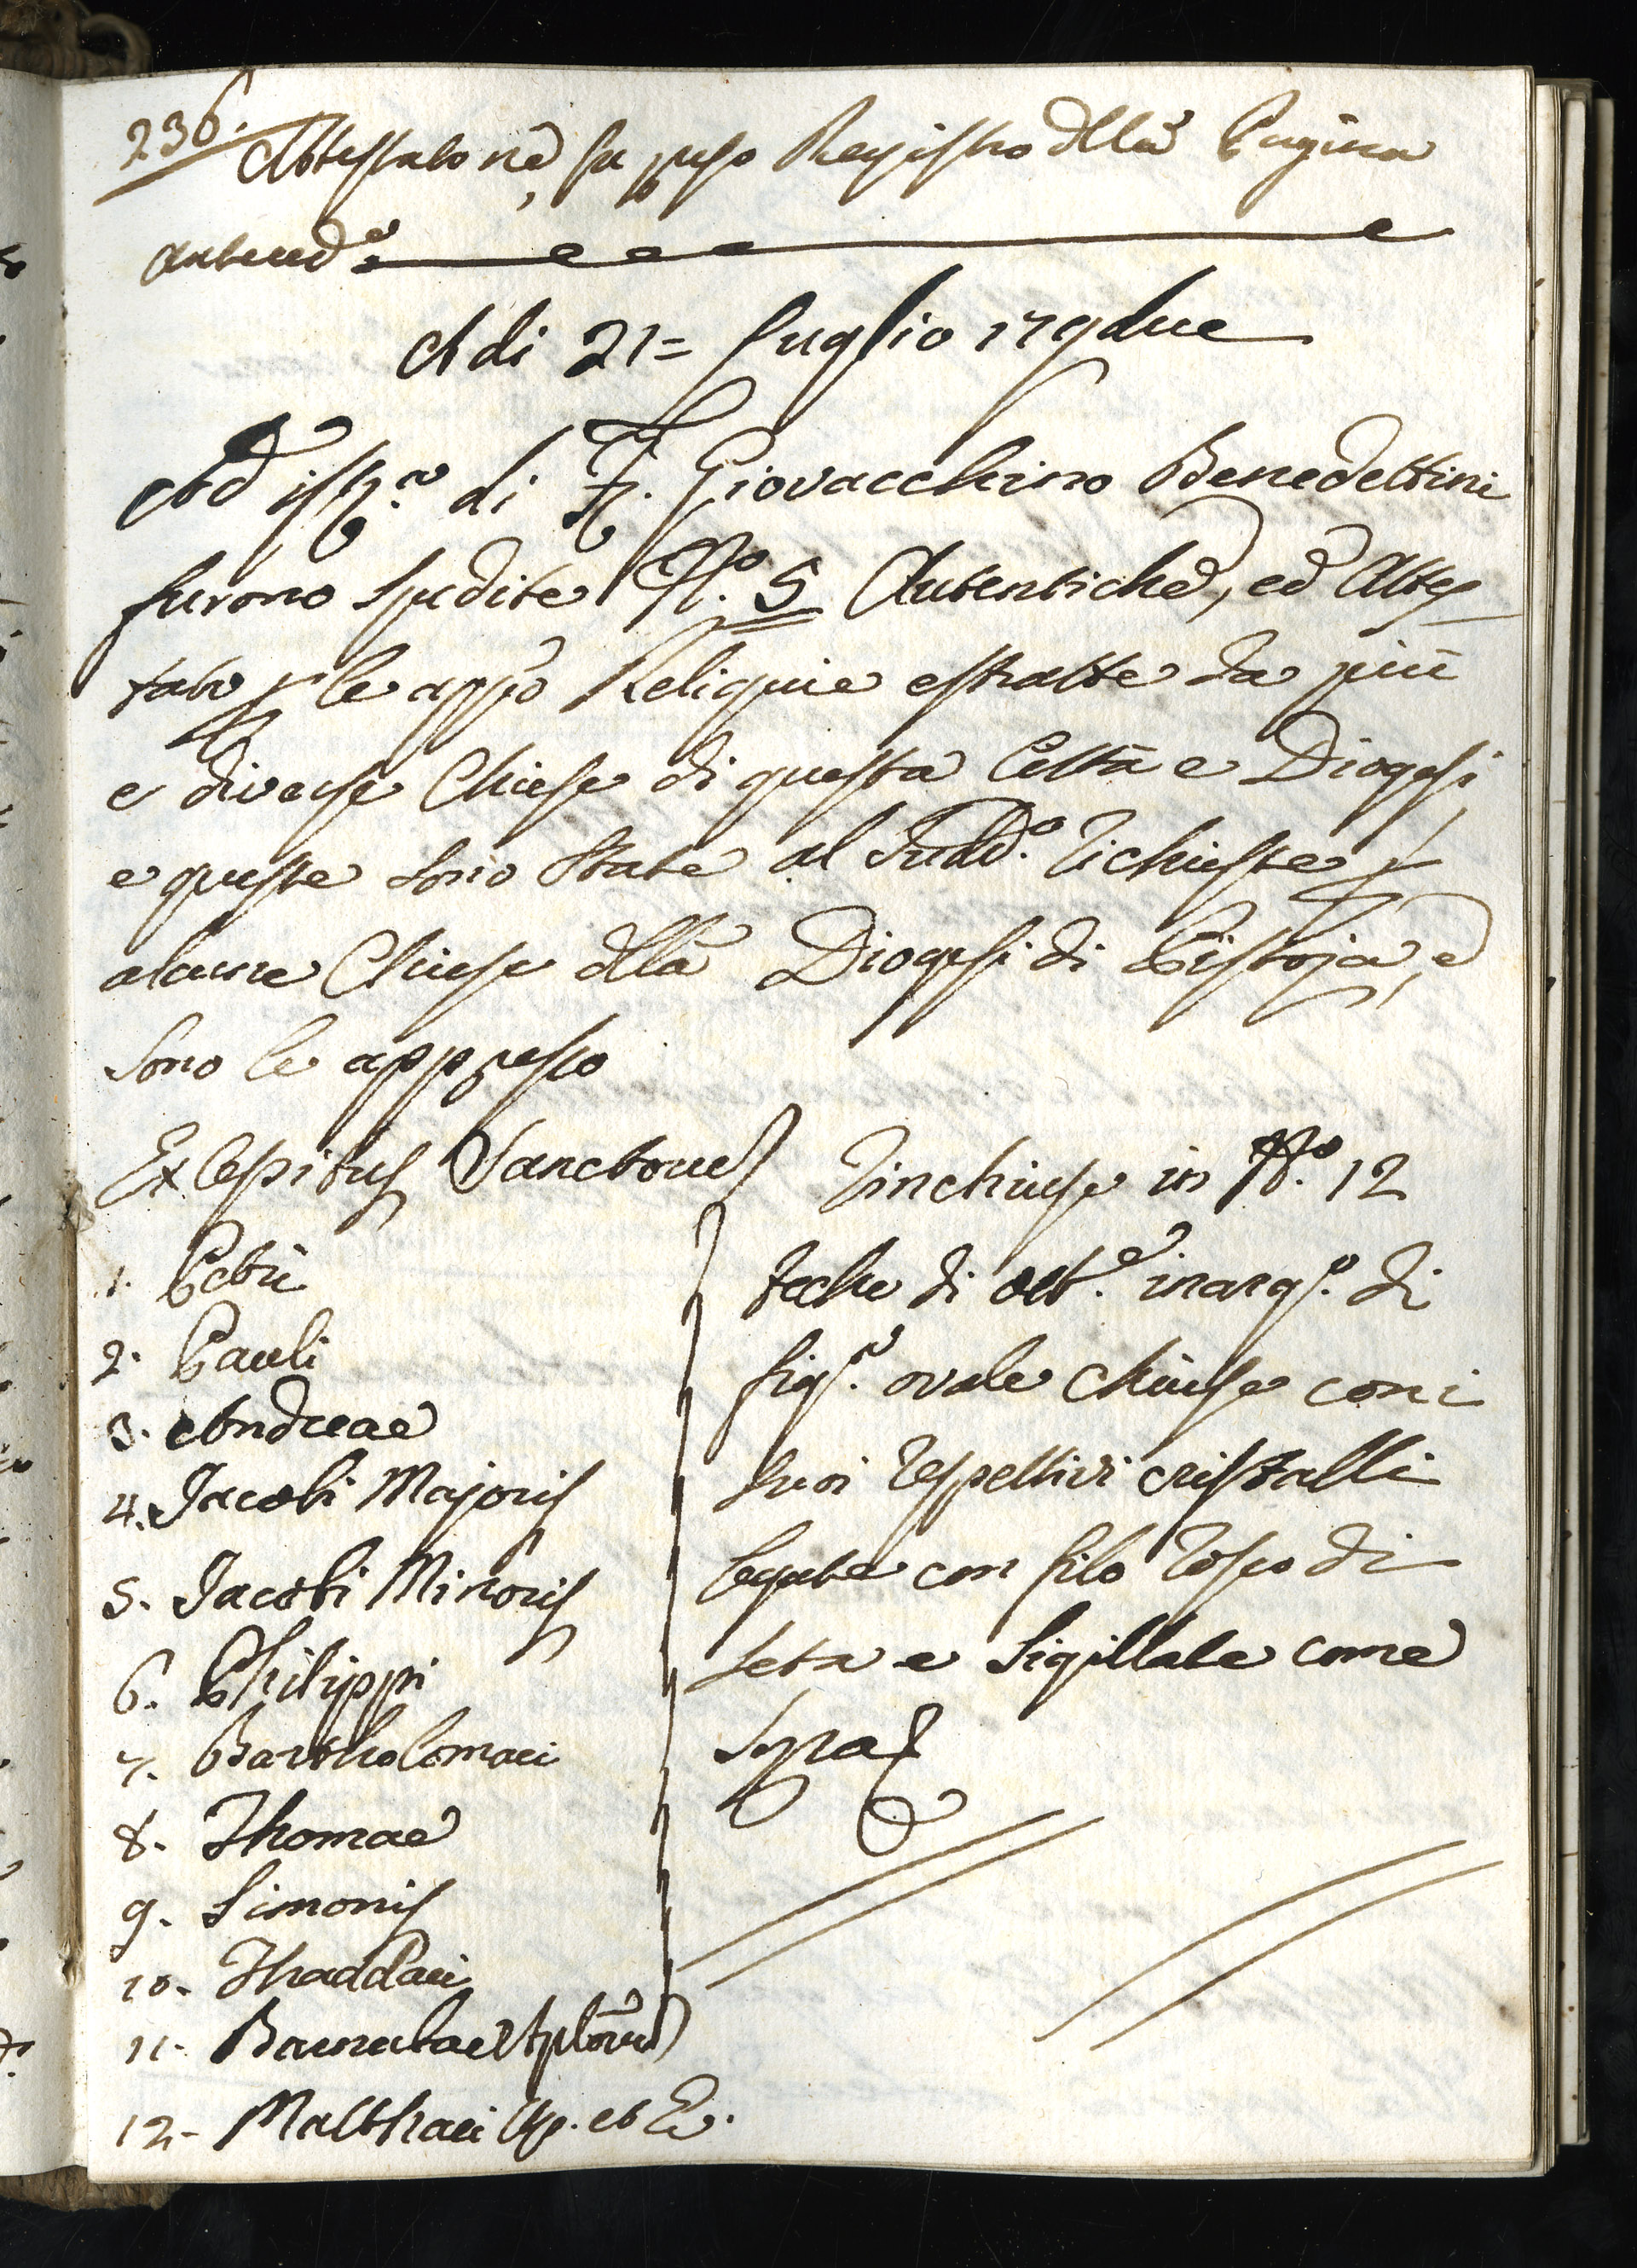 236.
Attestato ne fu preso Registro dlla Pagina
anteced.e
A di 21= Luglio 179due
Ad istz.a di F. Giovacchino Benedettini
furono spedite N.o 5 Autentiche, ed Attes
tato p le appo Reliquie estratte da più
e diverse Chiese di questa Città e Diogesi
e queste sono state al Sudd.o richieste p
alcune Chiese dlla Diogesi di Pistoja, e
sono le appresso
Ex Cspitus Sanctorum
1. Petri
2. Pauli
3. Andreae
4. Jacobi Majoris
5. Jacobi Minoris
6. Philippi
7. Bartholomaei
8. Thomae
9. Simonis
10. Thaddaei
11. Barnabae Aplōrum
12. Matthaei Ap. et Ev.
rinchiuse in N.o 12
teche di ott.e inarg.o di
fig.a ovale chiuse con i
suoi respettivi cristalli
legate con filo rosso di
seta e sigillate come
sopra